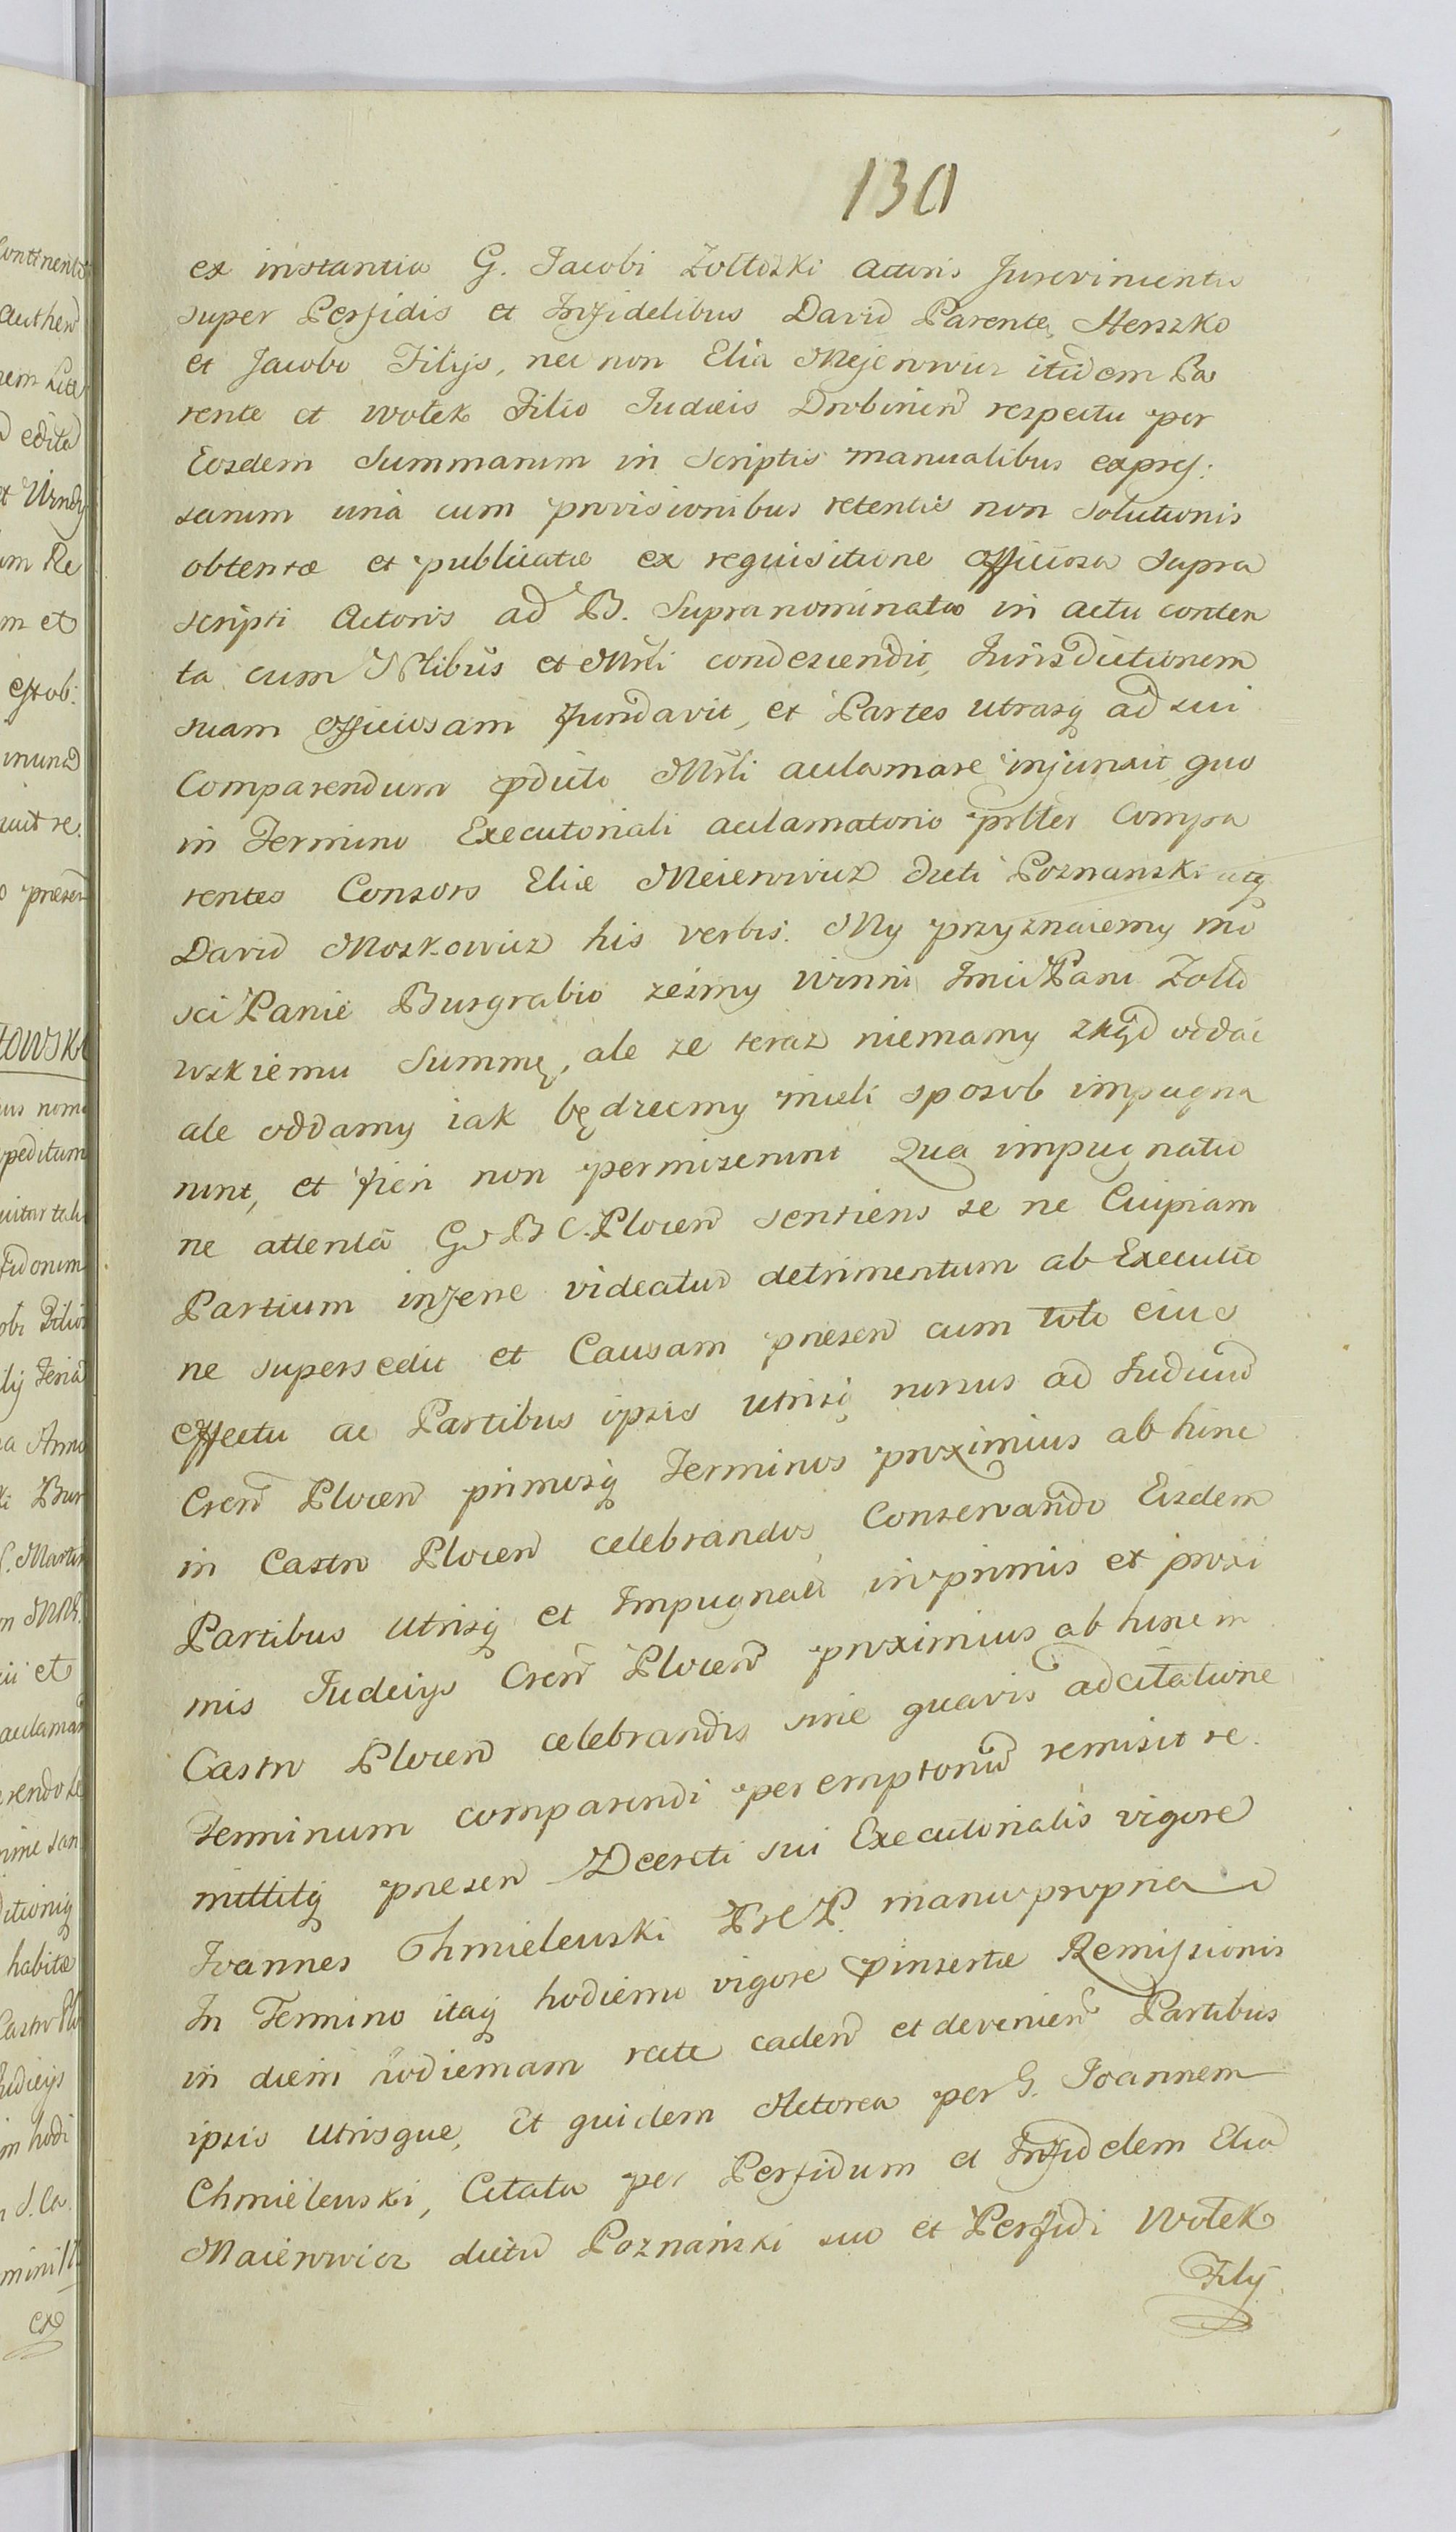 130
ex instantia G. Jacobi Zoltoski Actoris Jurevincentis
super Perfidis et Infidelibus David Parente, Herszko
et Jacobo Filijs, nec non Elia Mejerowicz itidem Pa
rente et Wolek Filio Judæis Drobinen respectu per
Eosdem Summarum in Scriptis manualibus expres:
sarum unà cum provisionibus retentis non Solutionis
obtentæ et publicatæ ex requisitione officiosa Supra
scripti Actoris ad B. Supranominata in actu conten
ta cum Nobilibus et Mnrli condescendit, Jurisdictionem
suam officiosam fundavit, et Partes utrasq ad sui
Comparendum pdicto Mnrli acclamare injunxit, quo
in Termino Executoriali acclamatorio prlter Compa
rentes Consors Eliæ Meierowicz dicti Poznanski
David Moszkowicz his verbis. My przyznaiemy Mo
sci Panie Burgrabio ześmy winni Jmci Panu Zołto
wskiemu Summę, ale ze teraz niemamy zkąd oddać
ale oddamy iak będziemy mieli sposob impugna
runt, et fieri non permiserunt Qua impugnatio
ne attentâ G. B. C. Plocen sentiens se ne Cuipiam
Partium inferre videatur detrimentum ab Executio
ne supersedit et Causam præsen cum toto eius
effectu ac Partibus ipsis utrisq rursus ad Judicia
Cren Plocen primosq Terminos proximius ab hinc
in Castro Plocen celebrandos Conservando Eisdem
Partibus utrisq et Impugnati inprimis et proxi
mis Judicijs Cren Plocen proximius ab hinc in
Castro Plocen celebrandis sine quavis adcitatione
Terminum comparendi peremptorium remisit re.
mittitq præsen Decreti sui Executorialis vigore
Joannes Chmielewski manu propria
In Termino itaq hodierno vigore pinsertæ Remissionis
in diem hodiernam recte caden et devenien Partibus
ipsis utrisque, et quidem Actorea per G. Joannem
Chmielewski, Citata per Perfidum et Infidelem Elia
Maierowicz dictu Poznański suo et Perfidi Wolek
Filij